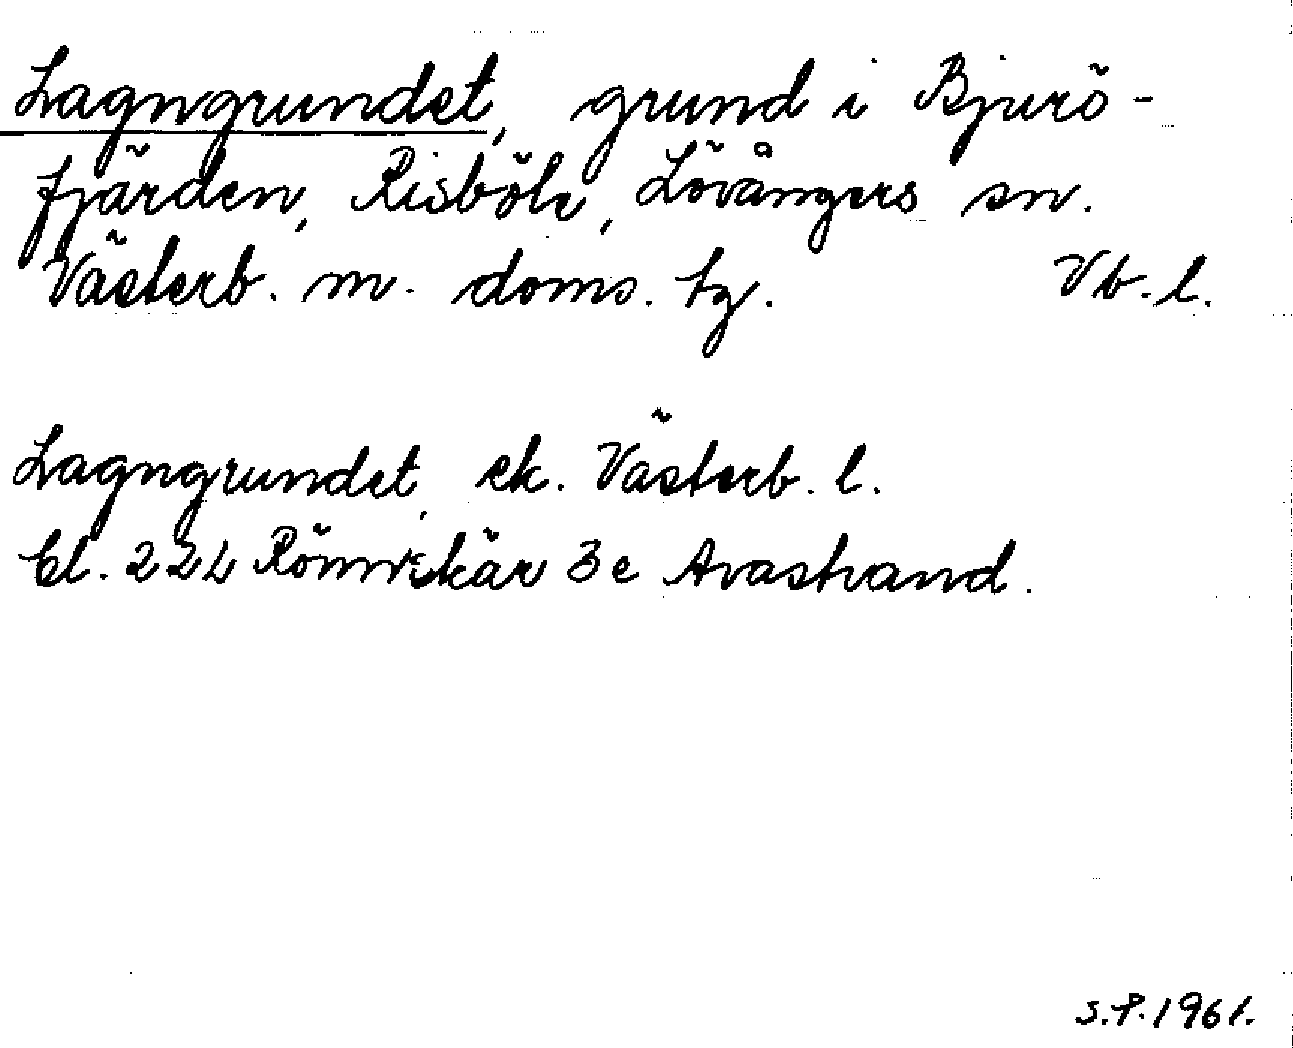 Lagngrundet, grund i Bjurö-
fjärden, Risböle, Lövångers sn.
Västerb. m. doms. tg. Vb. l.
Lagngrundet, ek. Västerb. l.
bl. 22L Rönnskär 3e Avastrand.
S.P. 1961.